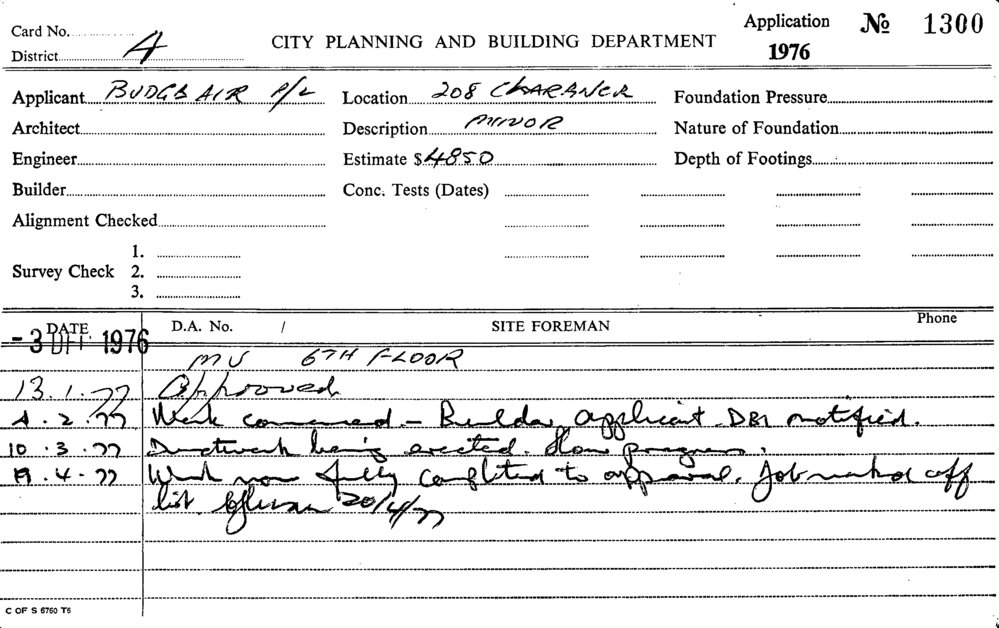 Card No.
District 4
CITY PLANNING AND BUILDING DEPARTMENT
Application
1976
No 1300
Applicant BUDGE AIR P/L
Location 208 CLARENCE
Foundation Pressure
Architect
Description MINOR
Nature of Foundation
Engineer
Estimate $4850
Depth of Footings
Builder
Conc. Tests (Dates)
Alignment Checked
Survey Check
1.
2.
3.
DATE
D.A. No. /
SITE FOREMAN
Phone
- 3 1976
MV 6TH FLOOR
13.1.77 Approved
4.2.77 Work commenced - Builder applicant. DBS notified.
10.3.77 Ductwork being erected. Slow progress.
19.4.77 Work now fully completed to approval. Job marked off
list. 20/4/77
C OF S 6760 T6